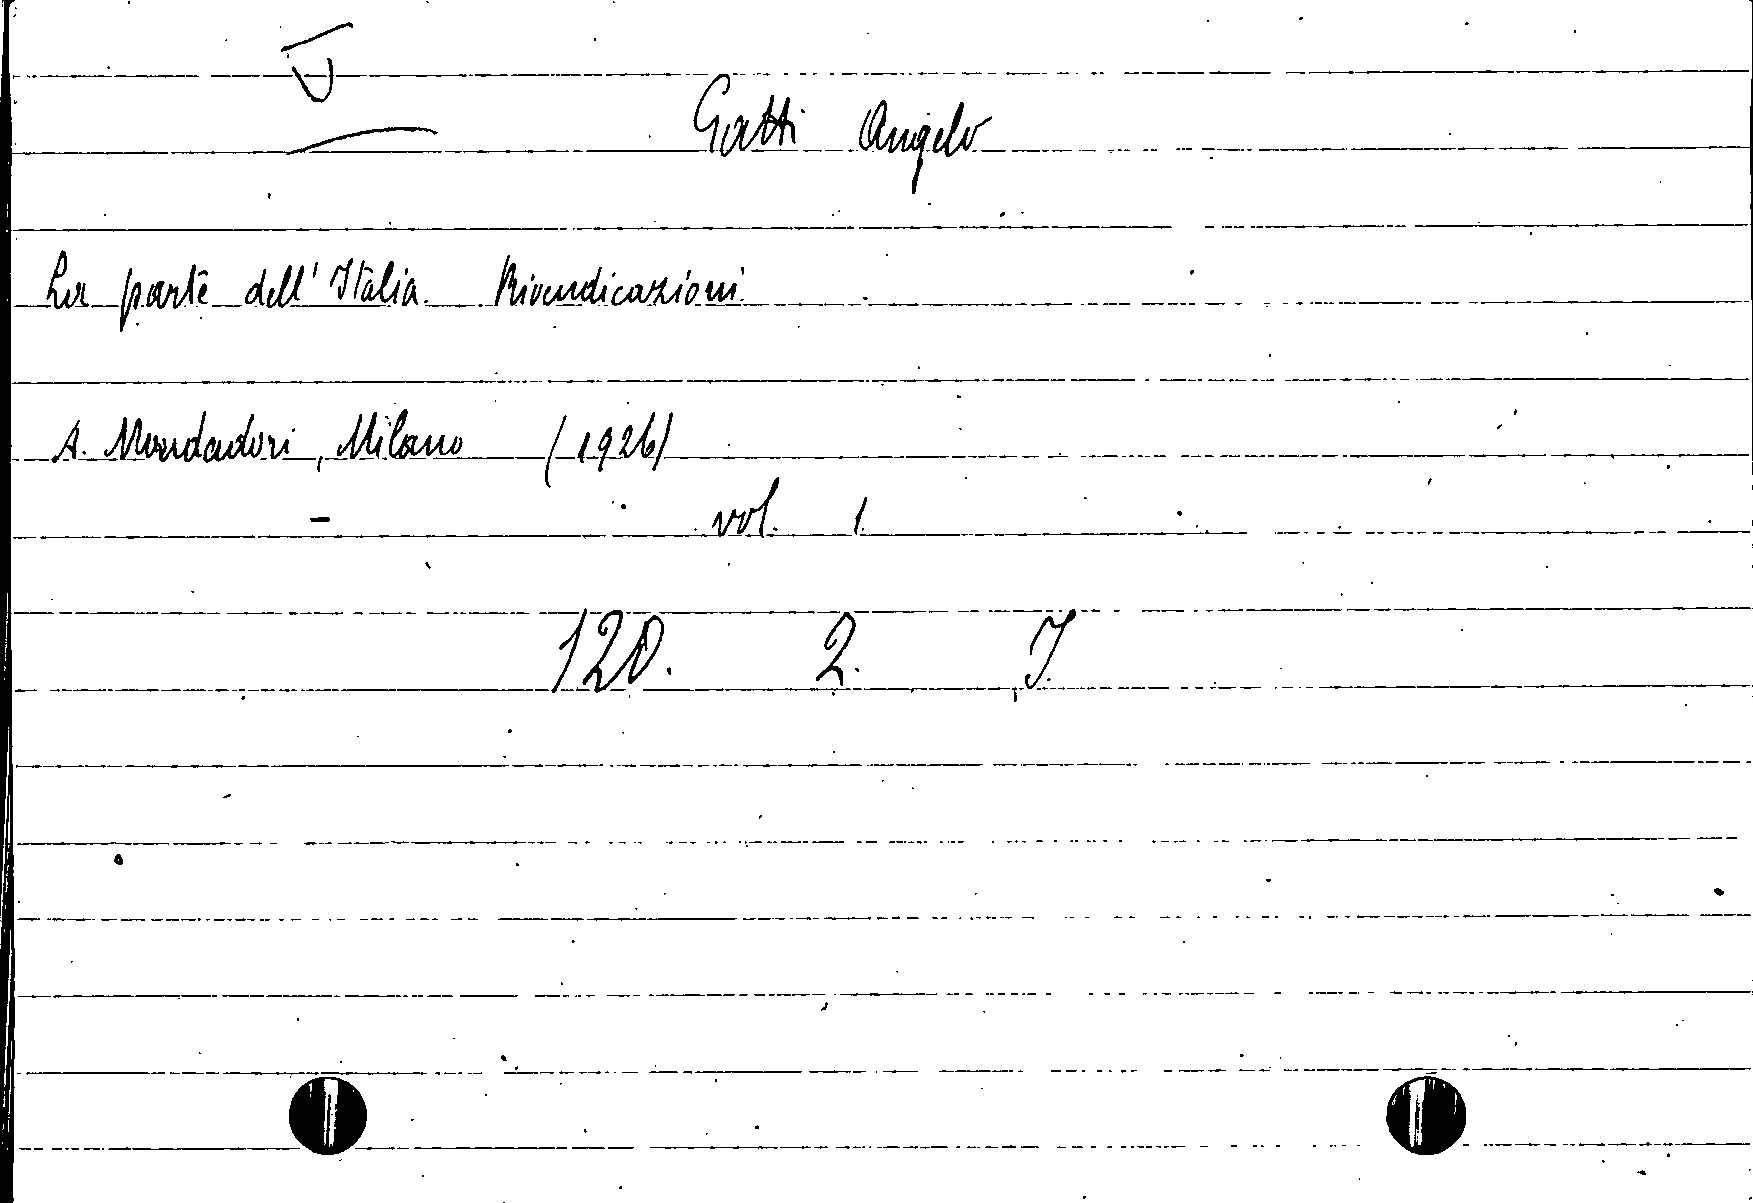 Gatti Angelo
La parte dell'Italia Rivendicazioni
A. Mondadori, Milano (1926)
vol. 1
120. 2. I.